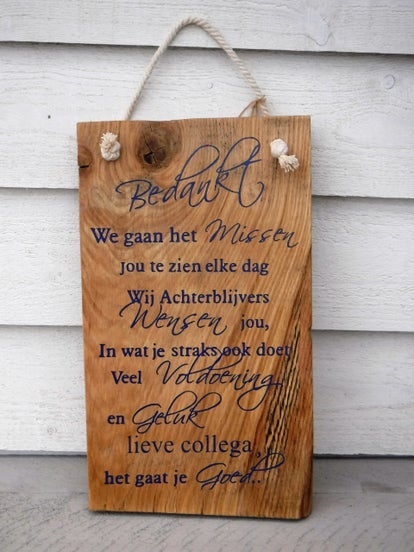 Bedankt
We gaan het Missen
jou te zien elke dag
Wij Achterblijvers
Wensen jou,
In wat je straks ook doet
Veel Voldoening,
en Geluk
lieve collega,
het gaat je Goed..